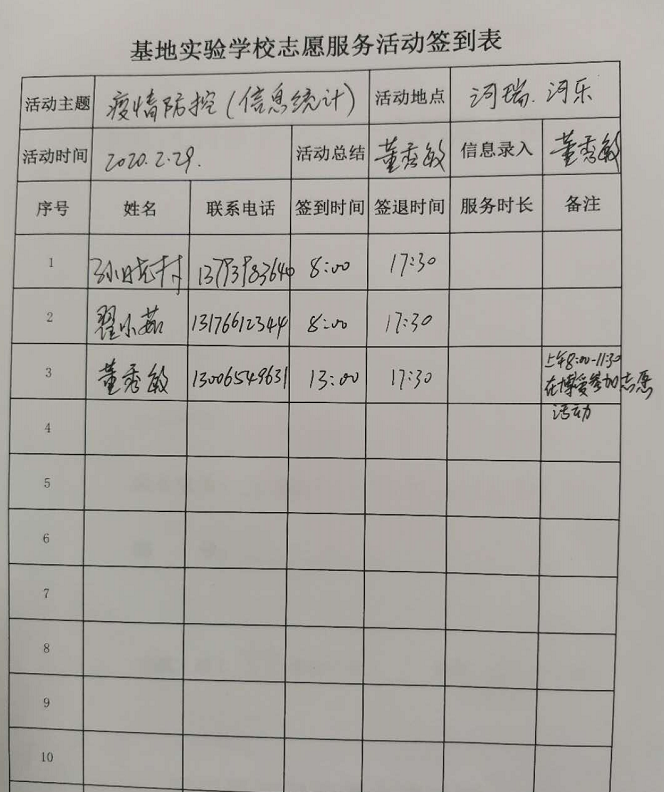 基地实验学校志愿服务活动签到表
活动主题 疫情防控(信息统计) 活动地点 河瑞.河乐
活动时间 2020.2.29. 活动总结 董秀敏 信息录入 董秀敏
序号 姓名 联系电话 签到时间 签退时间 服务时长 备注
1 孙晓村 13793983640 8:00 17:30
2 翟小茹 13176612344 8:00 17:30
3 董秀敏 13006549631 13:00 17:30 上午8:00-11:30
在博爱参加志愿
活动
4
5
6
7
8
9
10